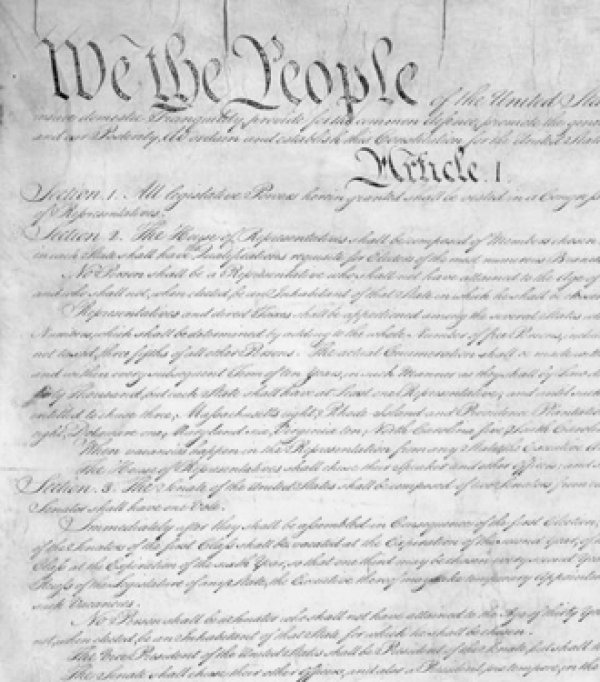 We the People of the United Sta
insure domestic Tranquility, provide for the common defence, promote the gene
and our Posterity, do ordain and establish this Constitution for the United State
Article. I.
Section. 1. All legislative Powers herein granted shall be vested in a Congress
of Representatives.
Section. 2. The House of Representatives shall be composed of Members chosen
in each State shall have Qualifications requisite for Electors of the most numerous Branch
No Person shall be a Representative who shall not have attained to the Age of
and who shall not, when elected, be an Inhabitant of that State in which he shall be chosen
Representatives and direct Taxes shall be apportioned among the several States
Numbers, which shall be determined by adding to the whole Number of free Persons, inclu
not taxed, three fifths of all other Persons. The actual Enumeration shall be made
and within every subsequent Term of ten Years, in such Manner as they shall by Law
thirty Thousand, but each State shall have at Least one Representative; and until such
entitled to chuse three, Massachusetts eight, Rhode Island and Providence Plantatio
eight, Delaware one, Maryland six, Virginia ten, North Carolina five, South Carolina
When vacancies happen in the Representation from any State, the Executive
The House of Representatives shall chuse their Speaker and other Officers; and
Section. 3. The Senate of the United States shall be composed of two Senators from
Senator shall have one Vote.
Immediately after they shall be assembled in Consequence of the first Election,
of the Senators of the first Class shall be vacated at the Expiration of the second Year, of
Class at the Expiration of the sixth Year, so that one third may be chosen every second Year
Recess of the Legislature of any State, the Executive thereof may make temporary Appointme
such Vacancies.
No Person shall be a Senator who shall not have attained to the Age of thirty Years
not, when elected, be an Inhabitant of that State for which he shall be chosen.
The Vice President of the United States shall be President of the Senate, but shall
The Senate shall chuse their other Officers, and also a President pro tempore, in the